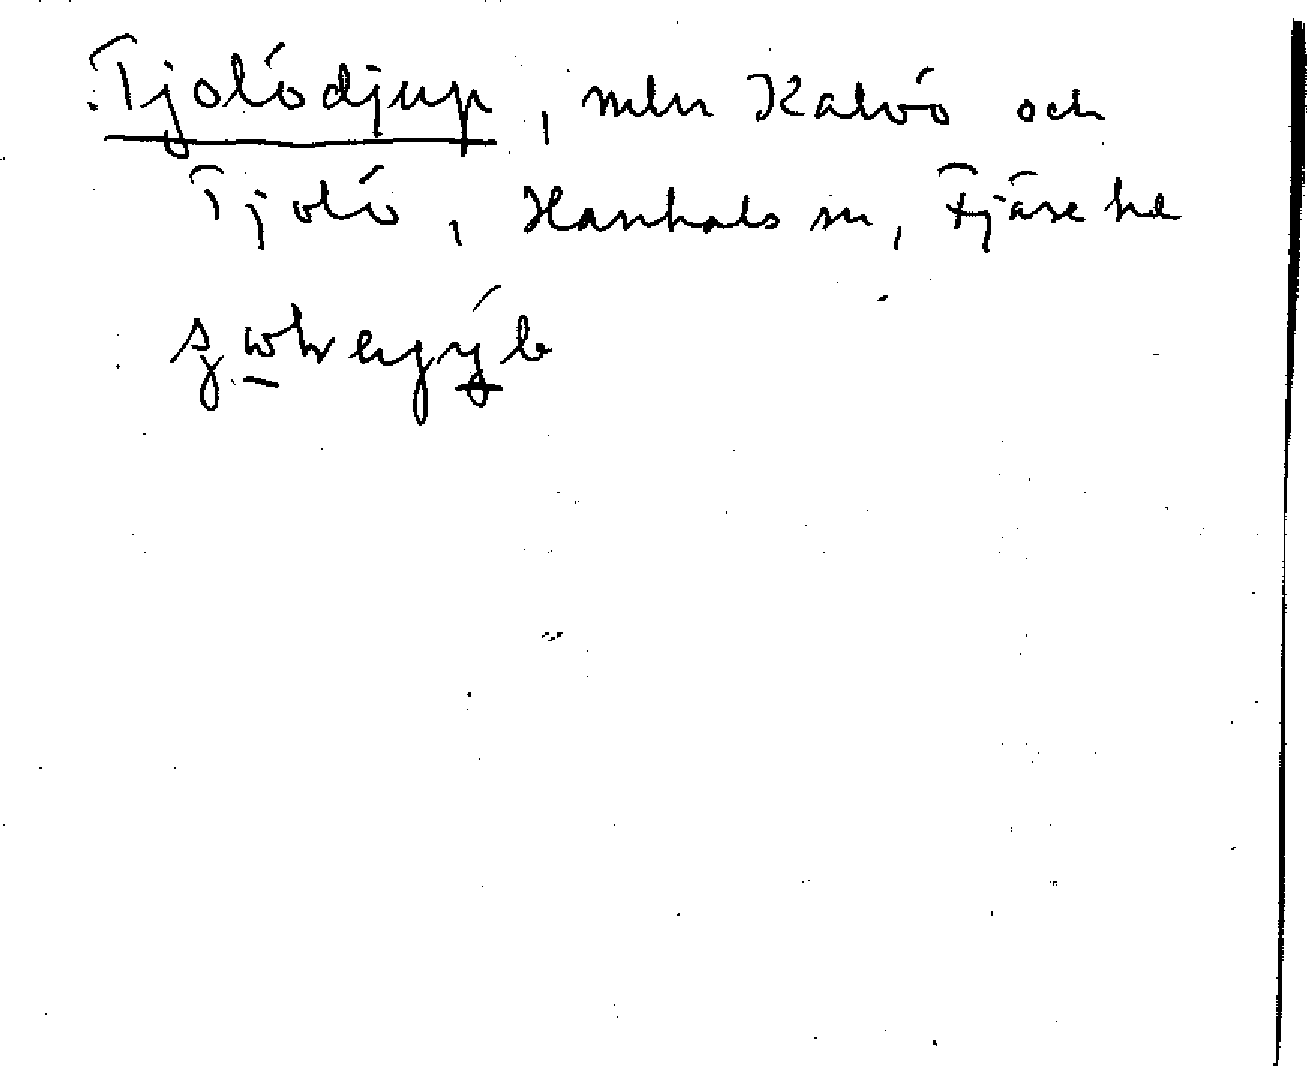 Tjolödjup, mln Kalvö och
Tjolö, Hanhals sn, Fjäre hd